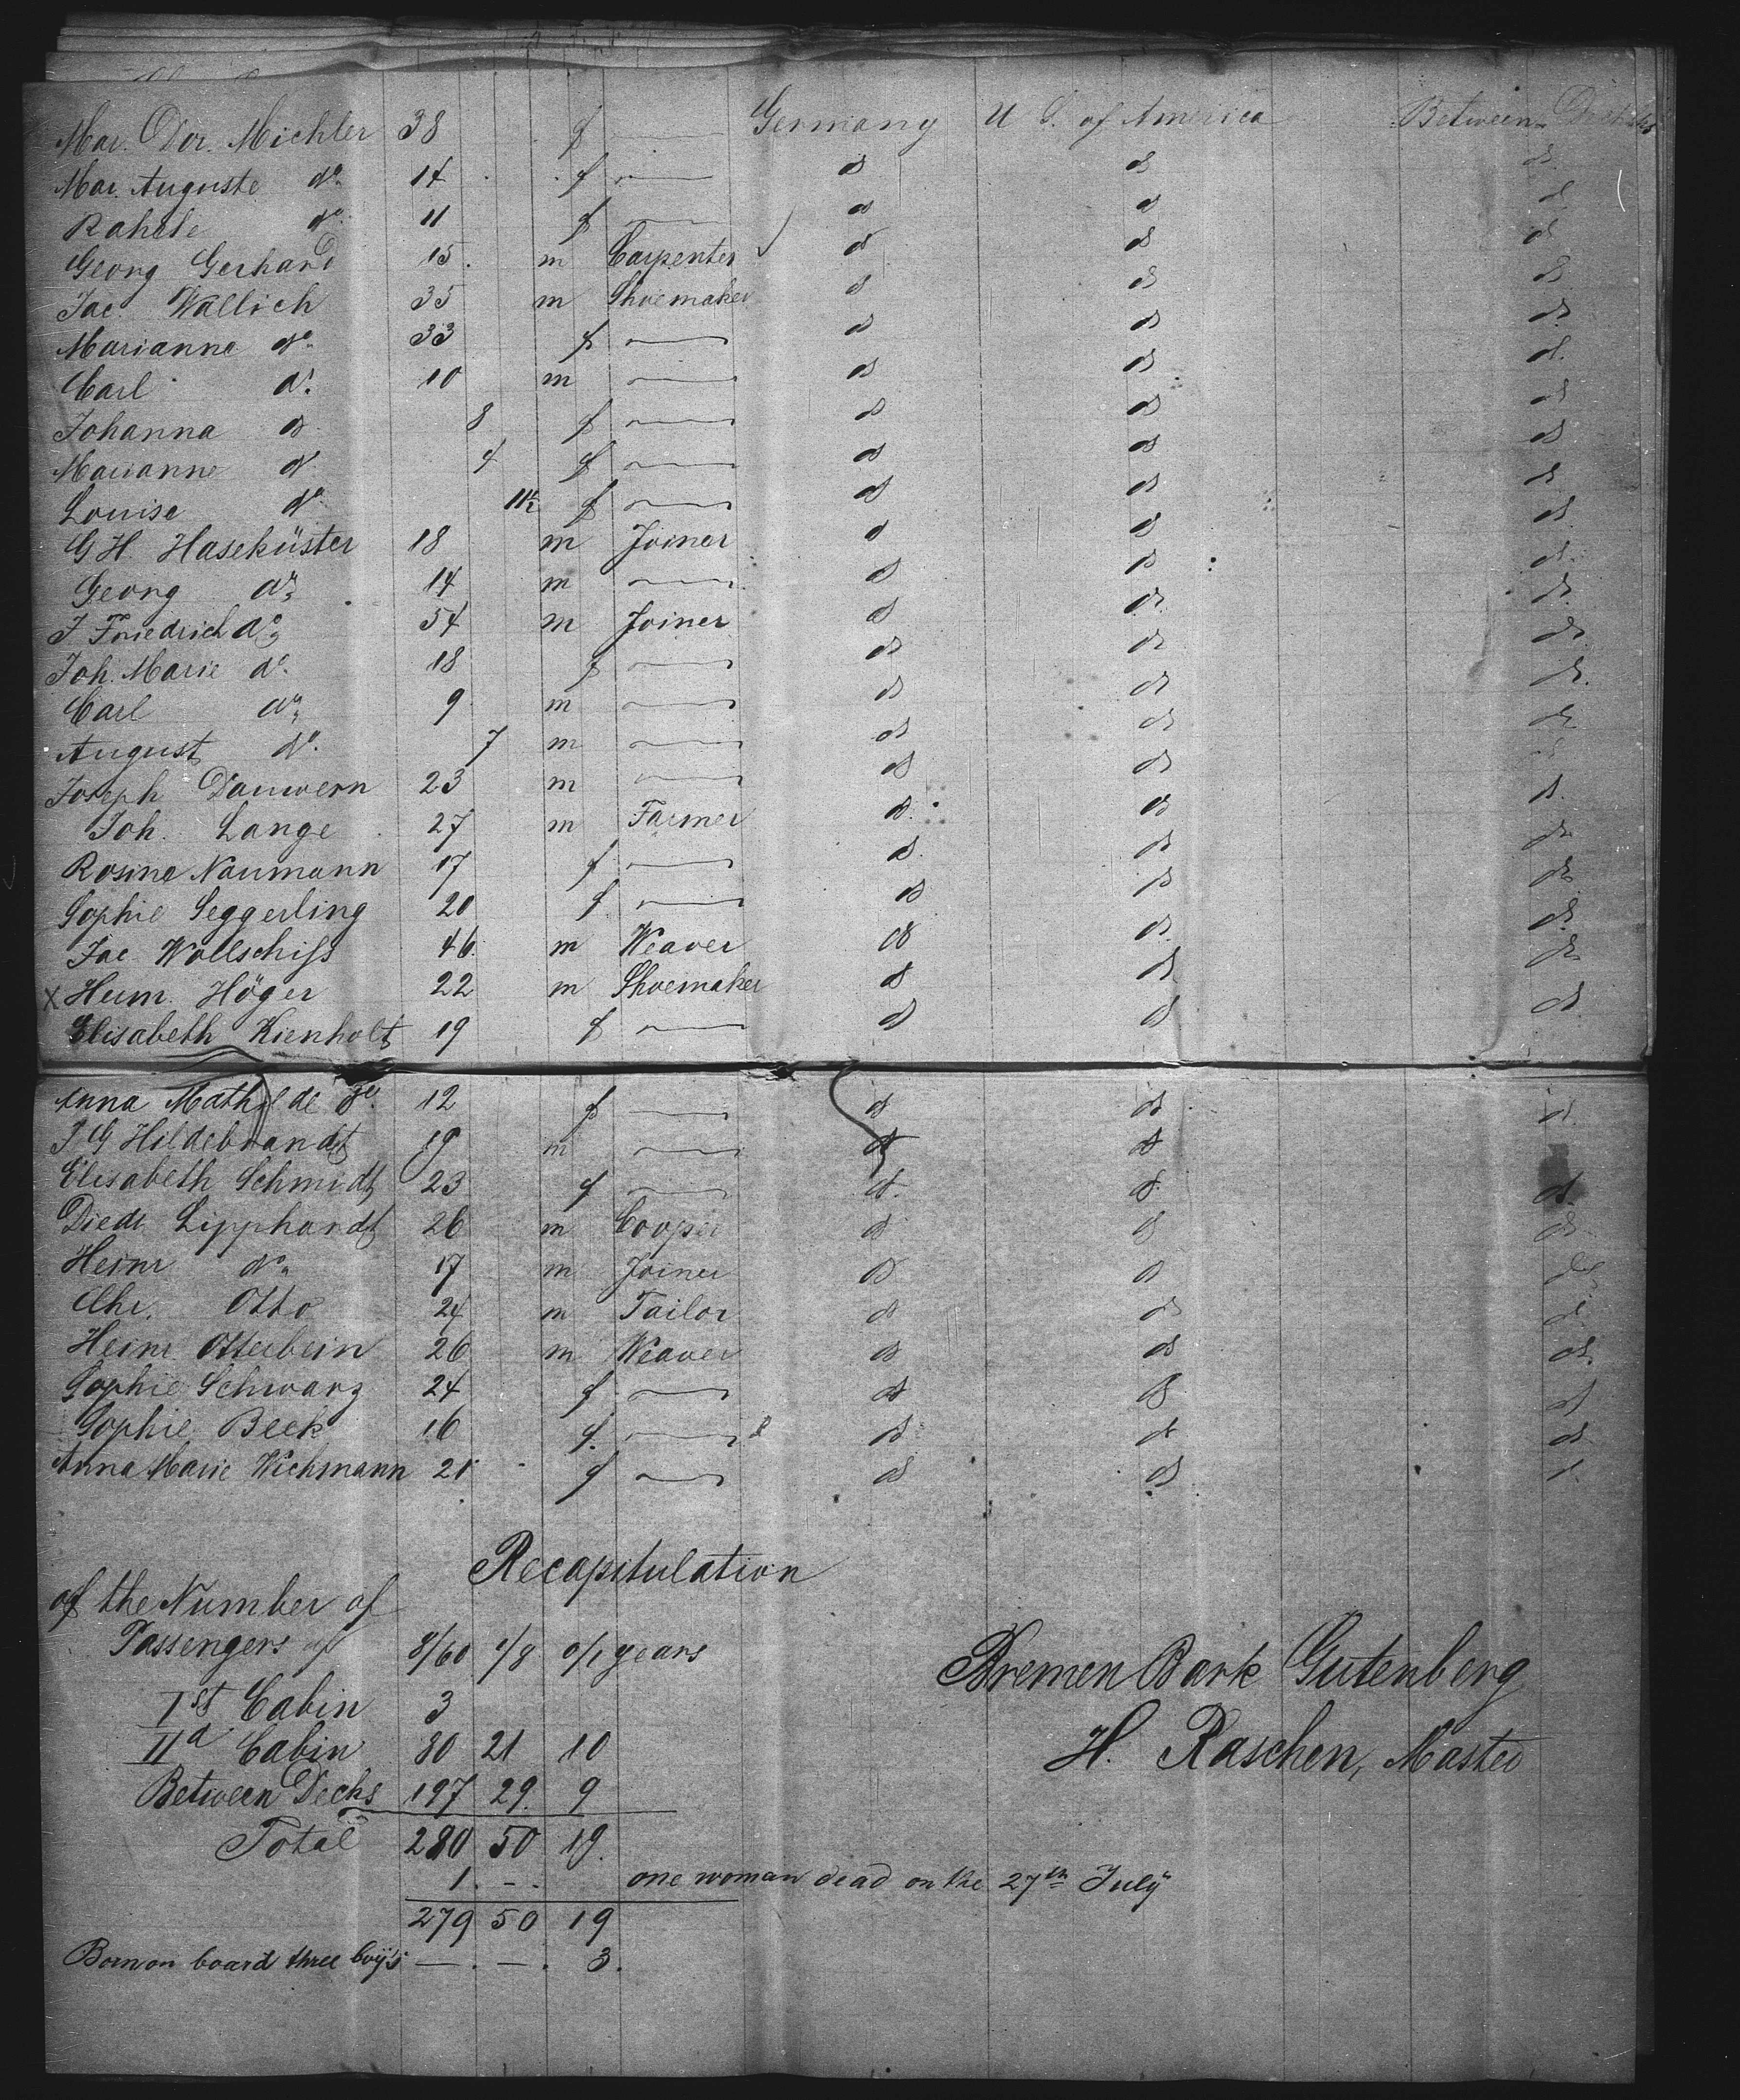 Mar. Dor. Michler 38 f — Germany U S. of America Between Decks
Mar. Auguste do. 14 f — do do do
Rahele do. 11 f — do do do
Georg Gerhard 15. m Carpenter do do do
Jac. Wallich 35 m Shoemaker do do do
Marianne do. 33 f — do do do
Carl do. 10 m — do do do
Johanna do 8 f — do do do
Marianne do 4 f — do do do
Louise do f — do do do
G H. Haseküster 18 m Joiner do do do
Georg do 14 m — do do do
J Friedrich do 54 m Joiner do do do
Joh. Marie do. 18 f — do do do
Carl do 9 m — do do do
August do. 7 m — do do do
Joseph Dauwern 23 m — do do do
Joh. Lange 27 m Farmer do do do
Rosine Naumann 17 f — do do do
Sophie Seggerling 20 f — do do do
Jac Wollschifs 46. m Weaver do do do
x Heinr. Höger 22 m Shoemaker do do do
Elisabeth Kienholt 19 f — do do do
Anna Mathilde do. 12 f — do do do
J G Hildebrandt 19 m — do do
Elisabeth Schmidt 23 f — do do do
Diedr. Lipphardt 26 m Cooper do do do
Heinr do. 17 m Joiner do do do
Chr. Otto 24 m Tailor do do do
Heinr. Otterbein 26 m Weaver do do do
Sophie Schwarz 24 f — do do do
Sophie Beck 16 f. — do do do
Anna Marie Wichmann 21 f — do do do
Recapitulation
of the Number of
Passengers of 8/60 1/8 0/1 years
Ist Cabin 3
IId Cabin 80 21 10
Between Decks 197 29. 9
Total 280 50 19.
1. -. one woman dead on the 27th July
279 50 19
Born on board three boys — . — . 3.
Bremen Bark Gutenberg
H. Raschen, Master